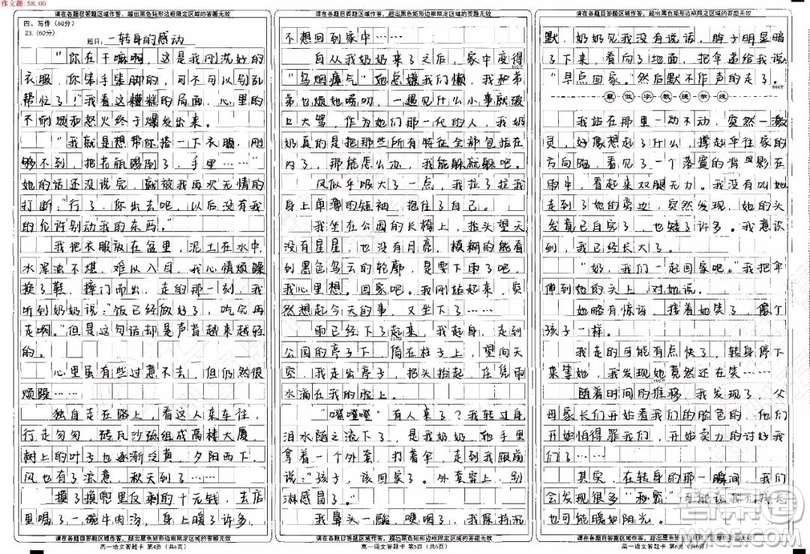 作文题:58.00
请在各题目答题区域作答，超出黑色矩形边框限定区域的答题无效
四、写作（60分）
23.（60分）
题目：转身的感动
"你在干嘛啊，这是我刚洗好的
衣服，你笨手笨脚的，可不可以别别
帮忙了！"我看这糟糕的局面，心里的
不耐烦和怒火终于爆发出来。
"我就是想帮你搭一下衣服，刚
够不到，把衣服踢倒了，手里……"
她的话还没说完，就被我再次无情的
打断，"行了，你出去吧，以后没有我
的允许别动我的东西。"
我把衣服放在盆里，泥土在水中，
水浑浊不堪，难以入目，我心情烦躁
换了鞋，摔门而出，走的那一刻，我
听到奶奶说："饭已经做好了，吃完再
走啊。"但是这句话却是声音越来越轻
的。
心里虽有些过意不去，但仍然很
烦躁……
独自走在路上，看这人来车往，
行走匆匆，砖瓦沙砾组成高楼大厦，
树上的叶子也逐渐泛黄，夕阳西下，
风也有了凉意，秋天到了……
摸了摸兜里仅剩的十元钱，去店
里喝了一碗牛肉汤，身上暖了许多，
请在各题目答题区域作答，超出黑色矩形边框限定区域的答题无效
高一语文答题卡 第4页（共6页）
请在各题目答题区域作答，超出黑色矩形边框限定区域的答题无效
不想回到家中……
自从我奶奶来了之后，家中变得
"乌烟瘴气"，她总嫌我们懒，我和弟
弟也烦她唠叨，一遇见什么小事就破
口大骂，作为她们那一代的人，我奶
奶真的是把那些所有特征全部包括在
内了，那能怎么办，我能躲就躲吧。
风似乎吸大了一点，我拉了拉我
身上单薄的短袖，抱住了自己。
我坐在公园的长椅上，抬头望天
没有星星，也没有月亮，模糊的能看
到黑色乌云的轮廓，是要下雨了吧，
我心里想，回家吧。我刚站起来，突
然想起今天的事，又坐下了……
雨已经下了起来，我起身，走到
公园的亭子下，倚在柱子上，望向天
空，我走出了亭子，把头抬起，任凭雨
水滴在我的脸上。
"噔噔噔"有人来了？我转过身，
泪水随之流下了，是我奶奶，她手里
拿着一个外套，打着伞，走到我跟前
说："孩子，该回家了。外套穿上，别
淋感冒了。"
请在各题目答题区域作答，超出黑色矩形边框限定区域的答题无效
高一语文答题卡 第5页（共6页）
请在各题目答题区域作答，超出黑色矩形边框限定区域的答题无效
默，奶奶见我没有说话，脖子明显暗
了下来，看向了地面，把伞递给我说：
"早点回家。"然后默不作声的走了。
我站在那里一动不动，突然一激
灵，好像想到了什么，撑起伞往家的
方向跑，看见了一个落寞的背影在
雨中，看起来双腿无力。我没有叫她
走到了她的旁边，突然发现，她的头
发竟已白完了，也矮了许多。我意识
到，我已经长大了。
"奶，我们一起回家吧。"我把伞
伸到她的头上，对她说。
她略有惊讶，接着她笑了，像个
孩子一样。
我走的可能有点快了，转身停下
来等她，我发现她竟然还在笑……
随着时间的推移，我发现了，父
母家长们开始看我们的脸色的，他们
开始怕得罪我们，开始卖力的讨好我
们了……
其实，在转身的那一瞬间，我们
会发现很多"秘密"
也能暖如阳光。
请在各题目答题区域作答，超出黑色矩形边框限定区域的答题无效